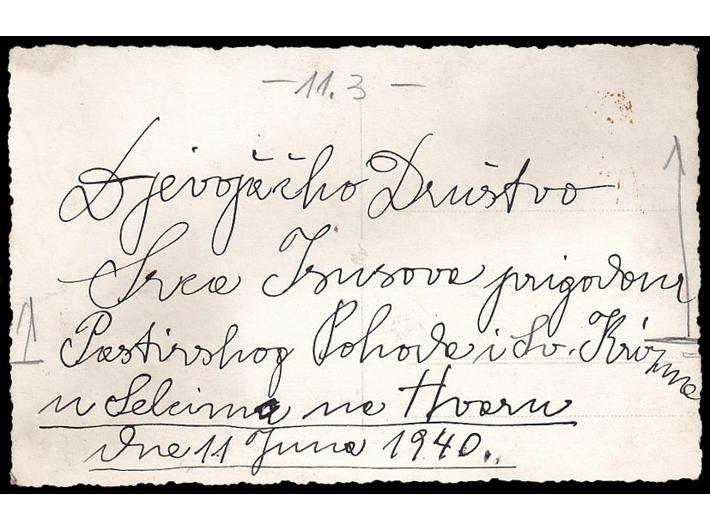 - 11.3 -
Djevojačko Društvo
Srca Isusova prigodom
Pastirskog Pohoda i Sv. Krizme
u Selcima na Hvaru
dne 11 Juna 1940.